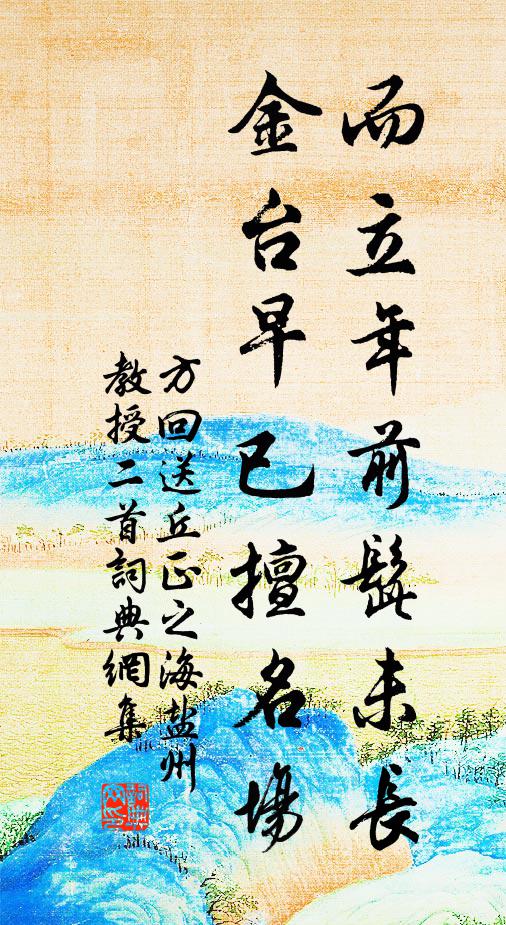 而立年前髭未長
金台早已擅名場
方回送丘正之海盐州
教授二首詞典網集